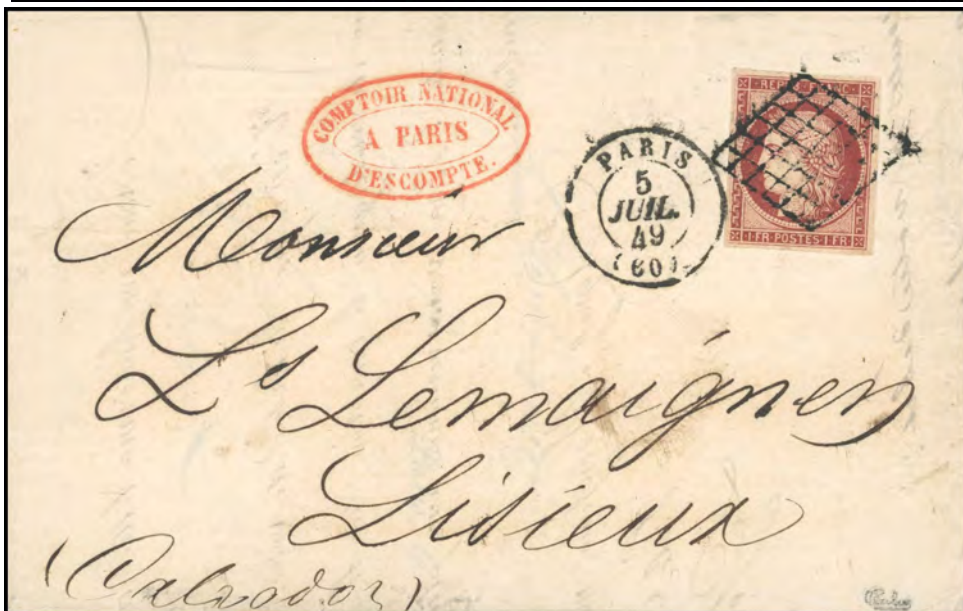 COMPTOIR NATIONAL
A PARIS
D'ESCOMPTE.
PARIS
5
JUIL.
49
(60)
REPUB. FRANC.
1·FR·POSTES·1·FR
Monsieur
Ls Lemaignen
Lisieux
(Calvados)